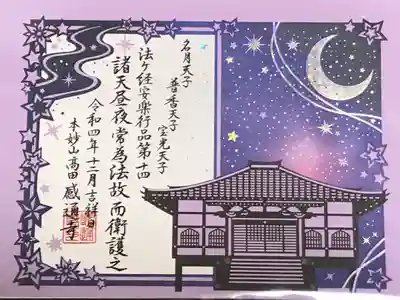 名月天子
普香天子
宝光天子
法華経安樂行品第十四
諸天昼夜常為法故而衛護之
令和四年十二月吉祥日
本妙山高田感通寺